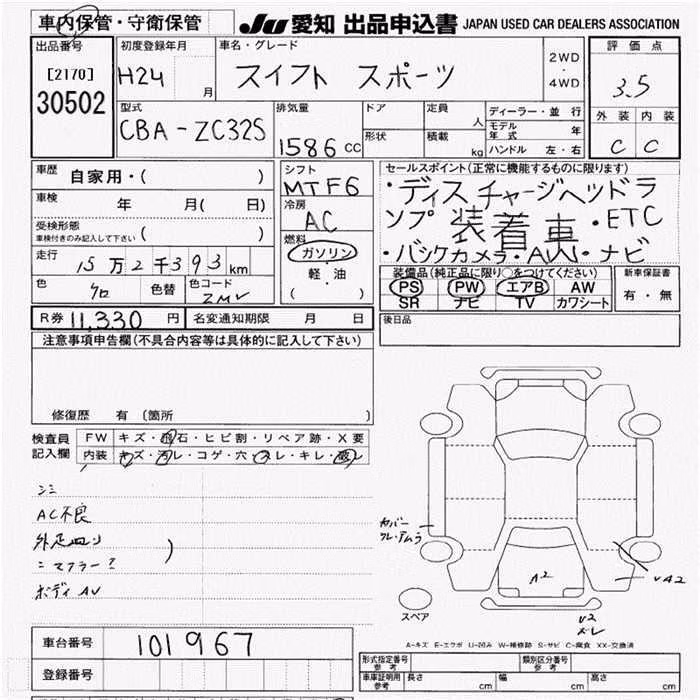 車内保管・守衛保管 JU 愛知 出品申込書 JAPAN USED CAR DEALERS ASSOCIATION
出品番号 初度登録年月 車名・グレード 評価点
[2170] H24 月 スイフト スポーツ 2WD・4WD 3.5
30502
型式 排気量 ドア 定員 人 ディーラー・並行 外装 内装
CBA-ZC32S 1586 CC 形状 積載 kg モデル年式 年 C C
ハンドル 左・右
車歴 自家用・( )
シフト MTF6
セールスポイント(正常に機能するものに限ります)
・ディスチャージヘッドラ
ンプ装着車・ETC
・バックカメラ・AW・ナビ
車検 年 月( 日)
冷房 AC
受検形態 車検付きのみ記入して下さい ( )
燃料 ガソリン
軽・油
( )
走行 15万2千393km
装備品(純正品に限り○をつけてください) 新車保証書
PS PW エアB AW 有・無
SR ナビ TV カワシート
色 クロ 色替 色コード ZMV
R券 11,330 円 名変通知期限 月 日
後日品
注意事項申告欄(不具合内容等は具体的に記入して下さい)
修復歴 有 [箇所 ]
検査員記入欄 FW キズ・飛石・ヒビ割・リペア跡・X要
内装 キズ・汚レ・コゲ・穴・スレ・キレ・破レ
シミ
AC不良
外足回り
マフラー
ボディAV
カバー
A2
V42
スペア
V2
ズレ
A-キズ E-エクボ U-凹み W-補修跡 S-サビ C-腐食 XX-交換済
車台番号 101967
登録番号
形式指定番号 参考 類別区分番号 参考
車庫証明用 参考 長さ cm 幅 cm 高さ cm